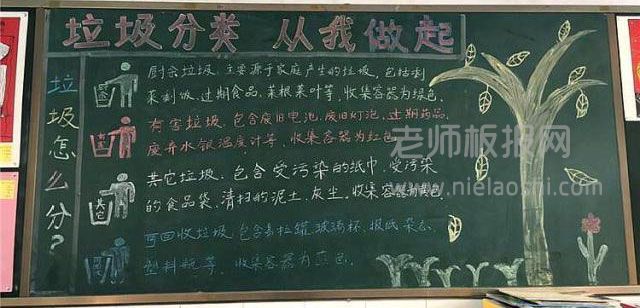 垃圾分类 从我做起
垃圾怎么分?
厨余垃圾:主要源于家庭产生的垃圾,包括剩
菜剩饭、过期食品、菜根菜叶等,收集容器为绿色。
有害垃圾:包含废旧电池、废旧灯泡、过期药品、
废弃水银温度计等,收集容器为红色。
其它垃圾:包含受污染的纸巾、受污染
的食品袋、清扫的泥土、灰尘。收集容器为黄色。
可回收垃圾:包含易拉罐、玻璃杯、报纸杂志、
塑料瓶等,收集容器为蓝色。
其它
老师板报网
www.nielaoshi.com